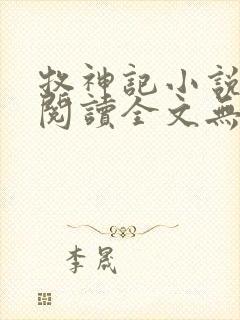 牧神記小說
閱讀全文無
李晟